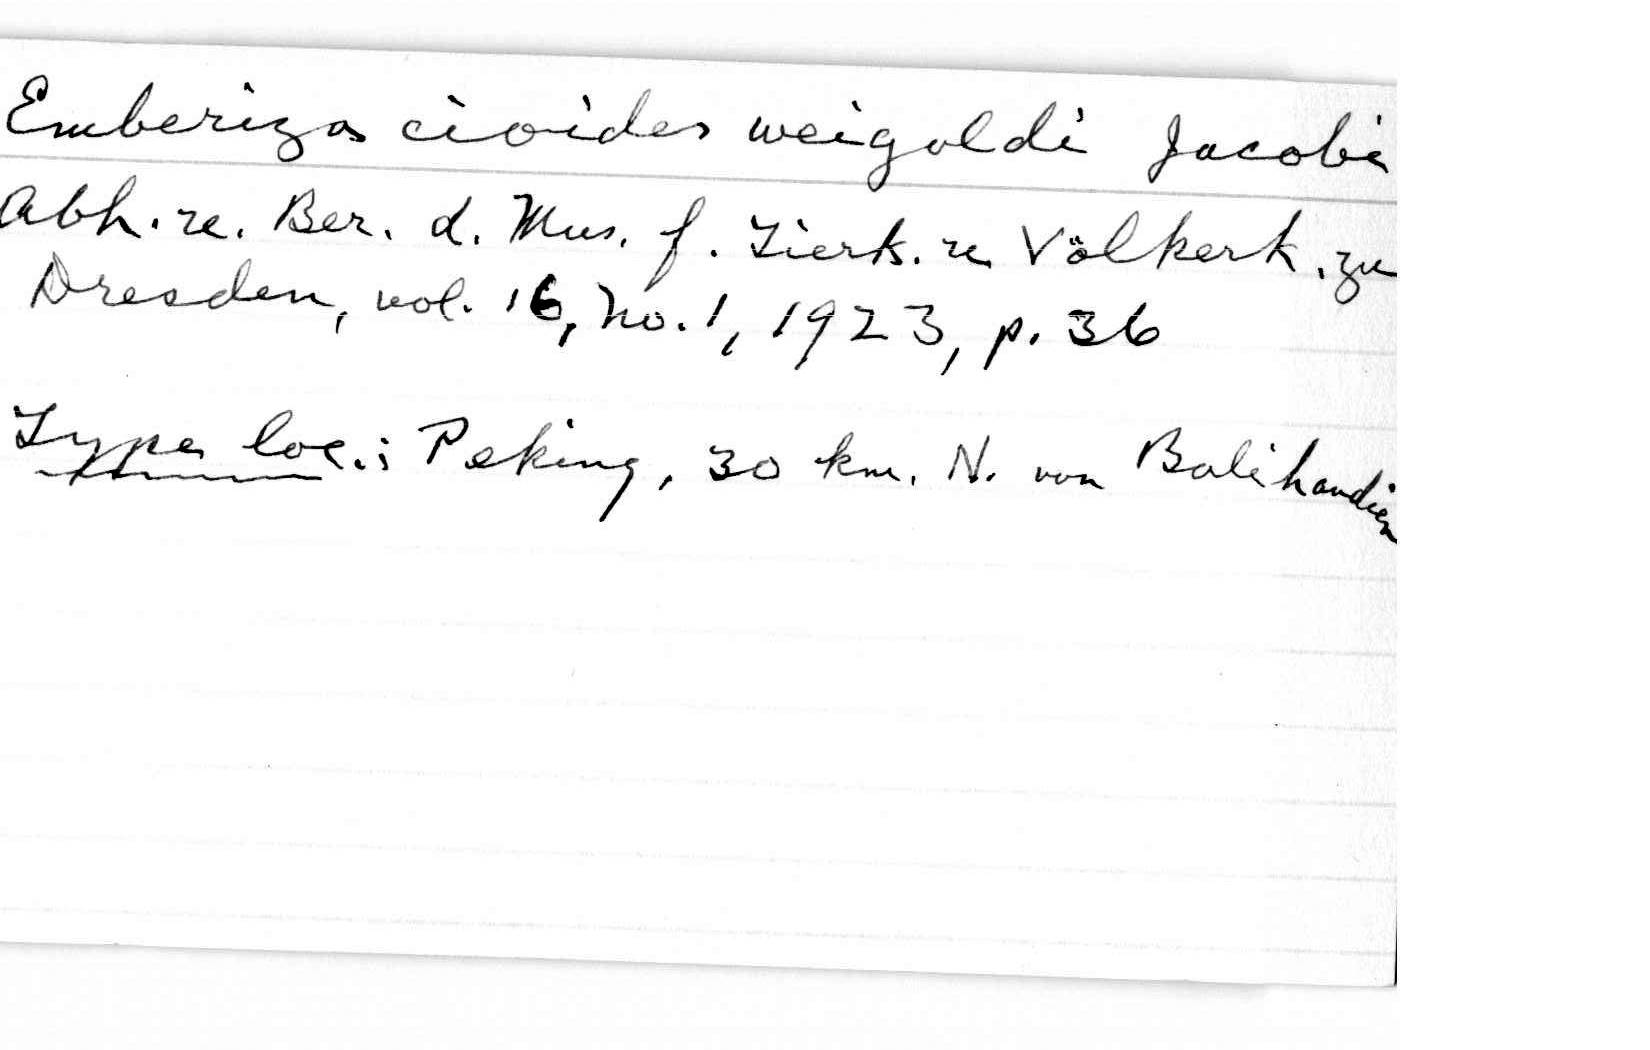 Emberiza cioides weigoldi Jacobi
Abh. u. Ber. d. Mus. f. Tierk. u Völkerk. zu
Dresden, vol. 16, No. 1, 1923, p. 36
Type loc.: Peking, 30 km. N. von Balihandien